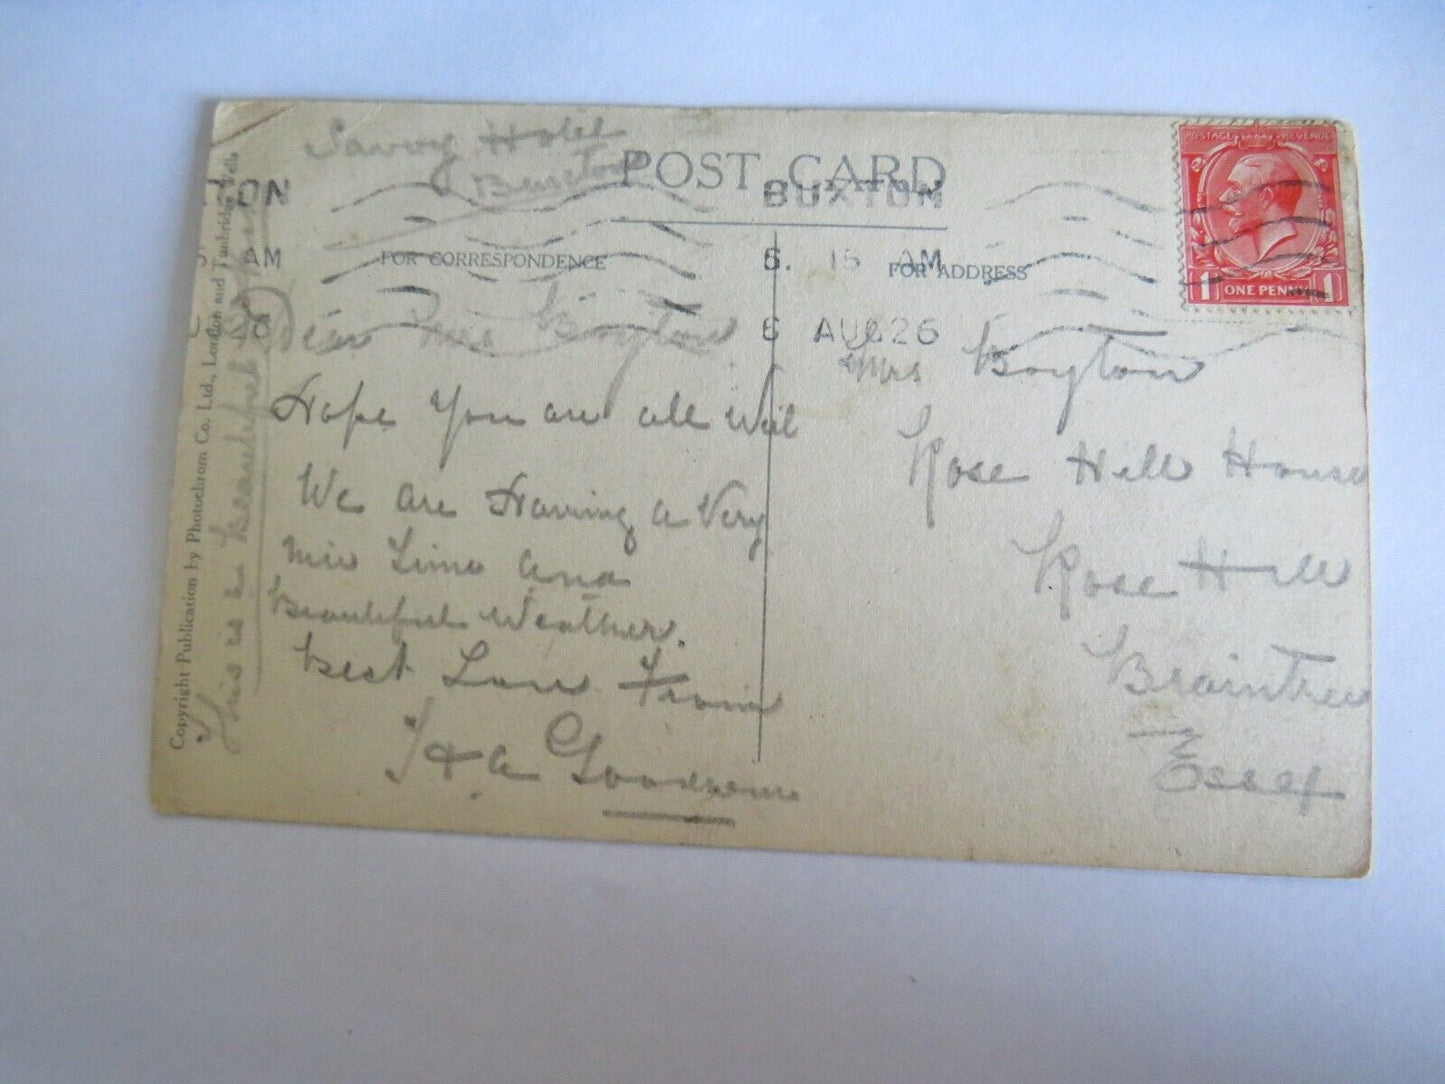 Savoy Hotel
Buxton
POST CARD
TON
BUXTON
AM
6. 15 AM
6 AUG 26
FOR CORRESPONDENCE
FOR ADDRESS
POSTAGE REVENUE
1 ONE PENNY 1
Dear Mrs Boyton
Hope You are all Well
We are Having a Very
Time and
Beautiful Weather.
Best Love From
& A
Mrs Boyton
Rose Hill House
Rose Hill
Braintree
Essex
This is a Beautiful
Copyright Publication by Photochrom Co. Ltd., London and Tunbridge Wells